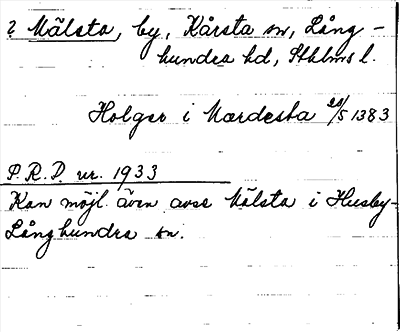 ? Mälsta, by, Kårsta sn, Lång-
hundra hd, Sthlms l.
Holger i Mærdesta 20/5 1383
P.R.P. nr. 1933
Kan möjl. även avse Mälsta i Husby-
Långhundra sn.